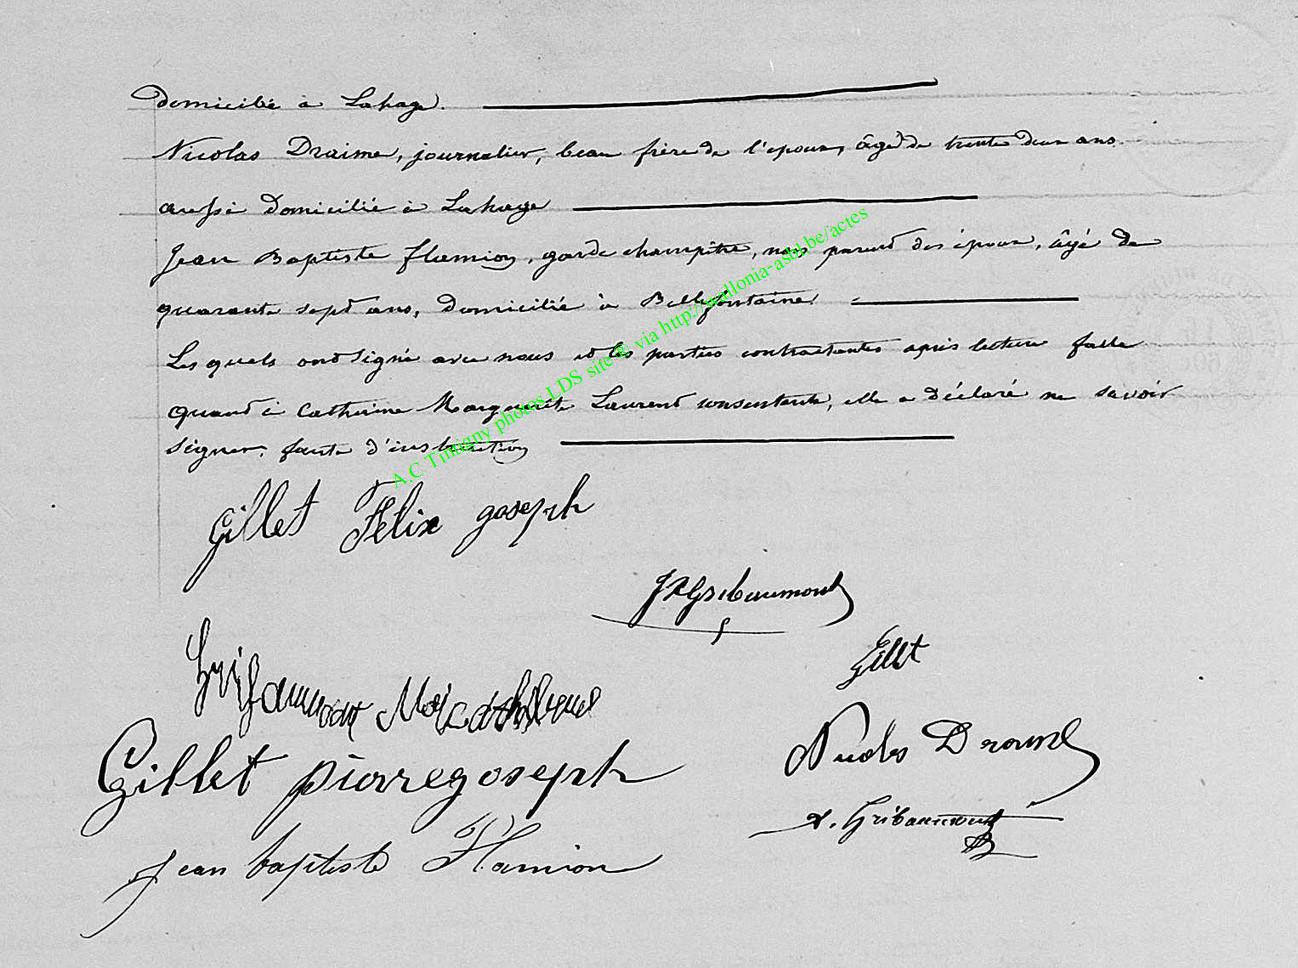 domiciliée à Lahage.
Nicolas Draime, journalier, beau frère de l'epoux, âgé de trente deux ans
aussi domicilié à Lahage
Jean Baptiste flamion, garde champêtre, non parent des époux, âgé de
quarante sept ans, domicilié à Bellefontaine.
Les quels ont signé avec nous et les parties contractantes après lecture faite
quant à Catherine Marguerite Laurent consentante, elle a déclaré ne savoir
signer, faute d'instruction
A.C Tintigny photos LDS site © via http://wallonia-asbl.be/actes
Gillet Félix goseph
JAGribaumont
Gribaumont Mari catherine
Gillet
Gillet pierre goseph
Nicolas Draime
x. Gribaumont
jean baptiste Flamion